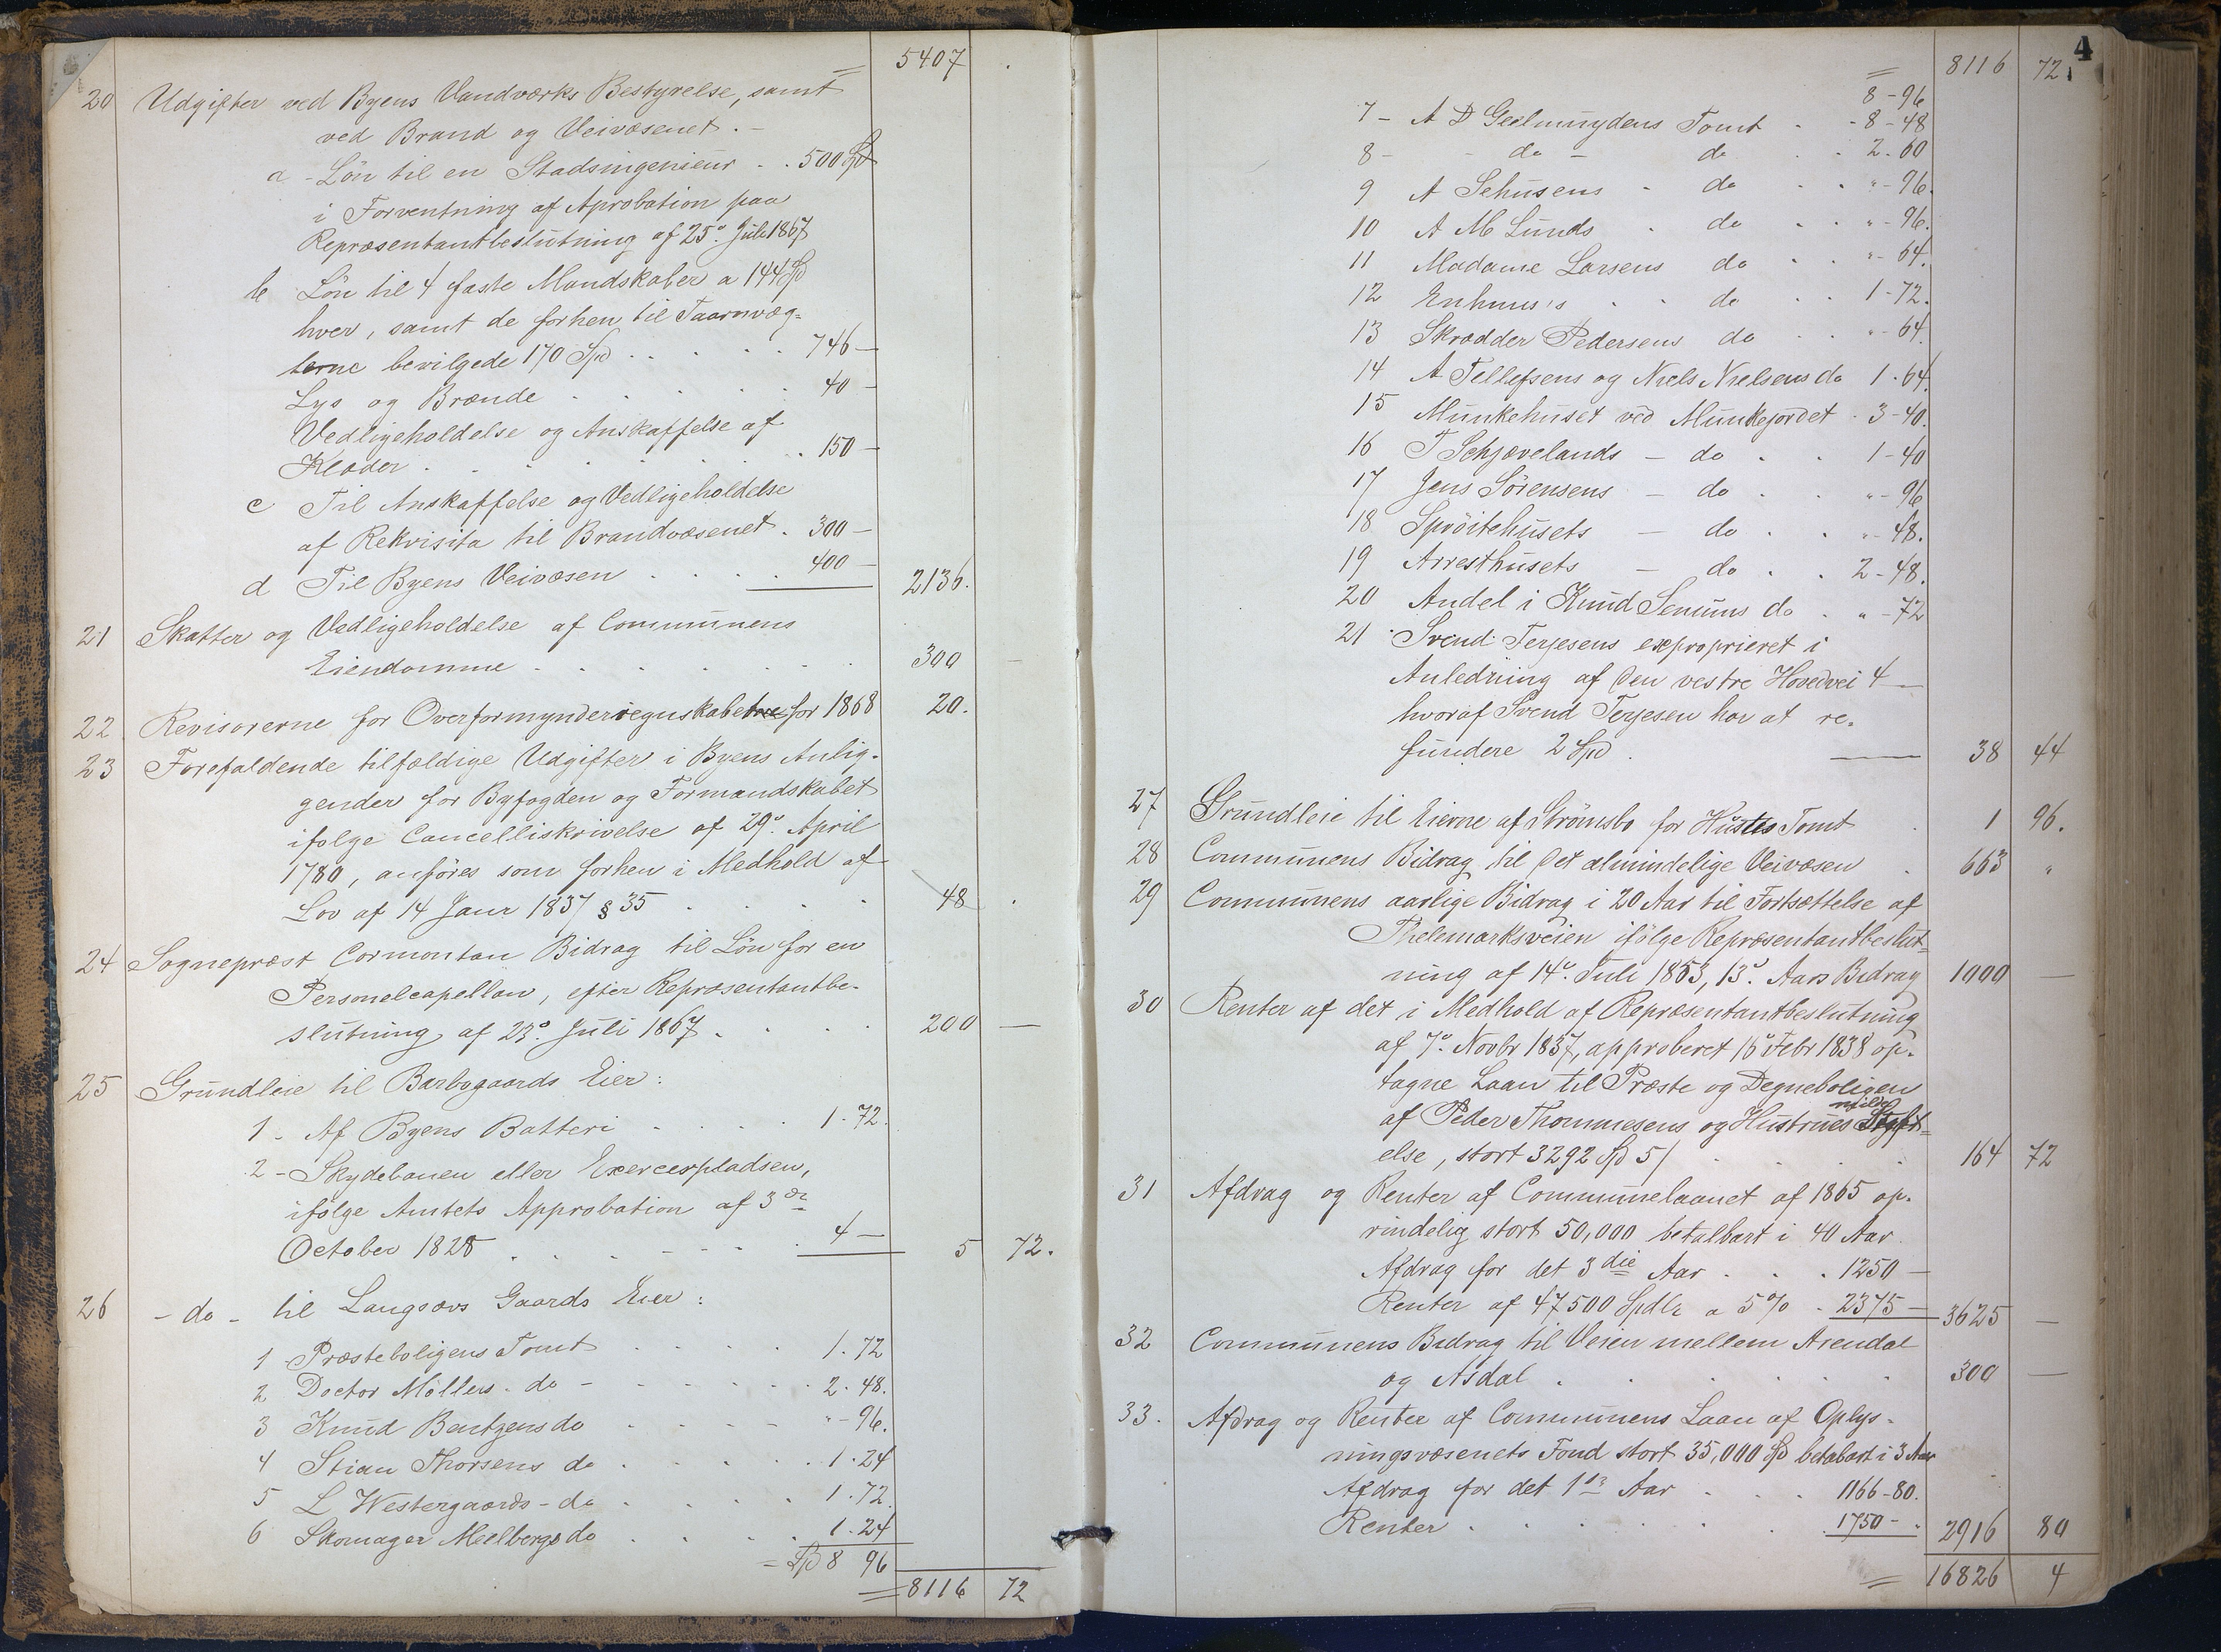 = 5407 .
20 Udgifter ved Byens Vandværks Bestyrelse, samt
ved Brand og Veivæsenet. -
a - Lön til en Stadsingenieur . . 500 Spd
i Forventning af Aprobation paa
Repræsentantbeslutning af 25de Juli 1867
b Lön til 4 faste Mandskaber a 144 Spd
hver, samt de forhen til Taarnvæg=
terne bevilgede 170 Spd . . . . . 746 —
Lys og Brænde . . . . 40 —
Vedligeholdelse og Anskaffelse af
Klæder . . . . . . 150 —
c Til Anskaffelse og Vedligeholdelse
af Rekvisita til Brandvæsenet . 300 —
d Til Byens Veivæsen . . . . 400 — 2136.
21 Skatter og Vedligeholdelse af Communens
Eiendomme . . . . . . . 300 —
22 Revisorerne for Overformynderregnskabet for 1868 20.
23 Forefaldende tilfældige Udgifter i Byens Anlig-
gender for Byfogden og Formandskabet
ifølge Cancelliskrivelse af 29de April
1780, anføres som forhen i Medhold af
Lov af 14 Janr 1837 § 35 . . . . 48 .
24 Sognepræst Cormontan Bidrag til Lön for en
Personelcapellan, efter Repræsentantbe-
slutning af 23de Juli 1867 . . . . 200 —
25 Grundleie til Barbogaards Eier:
1 - Af Byens Batteri . . . . 1 - 72.
2 - Skydebanen eller Exercerpladsen,
ifølge Amtets Approbation af 3de
October 1828 . . . . . . . 4 — 5 72.
26 - do - til Langsævs Gaards Eier:
1 Præsteboligens Tomt . . . . 1 - 72
2 Doctor Möllers - do - . . . . 2 - 48.
3 Knud Bentzens do . . . . " - 96.
4 Stian Thorsens do . . . . . 1 - 24
5 L Westergaards - do . . . . 1 - 72.
6 Skomager Melbergs do . . . . 1 - 24
= Spd 8 96
= 8116 72
4
= 8116 72
8 - 96
7 - A D Geelmuydens Tomt - - 8 - 48
8 - - do - do . . 2 - 60
9 A Sehusens - do . . " - 96.
10 A M Lunds . do . . " - 96.
11 Madame Larsens do . . " - 64.
12 Enhuus's . . do . . 1 - 72.
13 Skrædder Pedersens do . . " - 64.
14 A Tellefsens og Niels Nielsens do 1 - 64.
15 Munkehuset ved Munkejordet . 3 - 40.
16 T Schjævelands - do . . 1 - 40
17 Jens Sörensens - do . . " - 96
18 Spröitehusets — do . . " - 48.
19 Arresthusets — do . . 2 - 48.
20 Andel i Knud do . " - 72
21 Svend Terjesens exproprieret i
Anledning af den vestre Hovedvei 4 —
hvoraf Svend Terjesen har at re-
fundere 2 Spd . 38 44
27 Grundleie til Eierne af Strömsbo for Tomt . 1 96.
28 Communens Bidrag til det almindelige Veivæsen . 663 "
29 Communens aarlige Bidrag i 20 Aar til Fortsættelse af
Thelemarksveien ifölge Repræsentantbeslut=
ning af 14de Juli 1853, 13de Aars Bidrag 1000 —
30 Renter af det i Medhold af Repræsentantbeslutning
af 7de Novbr 1837, approberet 16 Febr 1838 op-
tagne Laan til Præste og Degneboligen
af Peder Thommesens og Hustrues
else, stort 3292 Spd 5/ . . . . 164 72
31 Afdrag og Renter af Communelaanet af 1865 op-
rindelig stort 50,000 betalbart i 40 Aar
Afdrag for det 3die Aar . . . 1250 —
Renter af 47500 Spdlr a 5% . 2375 — 3625 —
32 Communens Bidrag til Veien mellem Arendal
og Asdal . . . . . . 300 —
33. Afdrag og Renter af Communens Laan af Oplys-
ningsvæsenets Fond stort 35,000 Spd betalbart i 3 Aar
Afdrag for det 1ste Aar . . . 1166 - 80.
Renter . . . . . . . 1750 - " 2916 80
= 16826 4